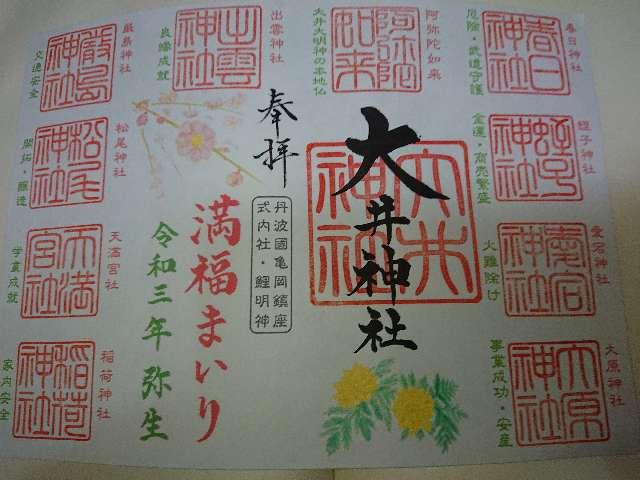 春日神社
春日神社
厄除・武道守護
蛭子神社
蛭子神社
金運・商売繁盛
愛宕神社
愛宕神社
火難除け
大原神社
大原神社
事業成功・安産
阿弥陀如来
阿弥陀如来
大井大明神の本地仏
大井神社
大井神社
奉拝
丹波國亀岡鎮座
式内社・鯉明神
出雲神社
出雲神社
良縁成就
満福まいり
令和三年 弥生
厳島神社
嚴島神社
交通安全
松尾神社
松尾神社
開拓・醸造
天満宮社
天満宮社
学業成就
稲荷神社
稲荷神社
家内安全